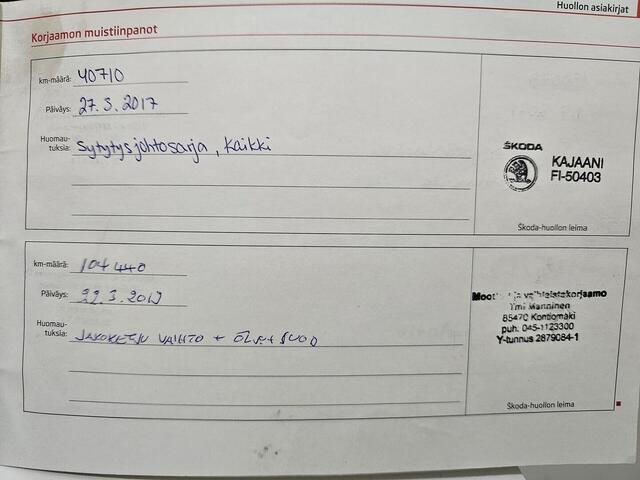 Huollon asiakirjat
Korjaamon muistiinpanot
km-määrä: 40710
Päiväys: 27.3.2017
Huomau-
tuksia: Sytytysjohtosarja, kaikki
ŠKODA
KAJAANI
FI-50403
Škoda-huollon leima
km-määrä: 104 440
Päiväys: 22.3.201
Huomau-
tuksia: JAKOKETJU VAIHTO + ÖLJYT SUOD
ja vaihteistokorjaamo
Ymi Manninen
85470 Kontiomäki
puh. 045-1123300
Y-tunnus 2879084-1
Škoda-huollon leima